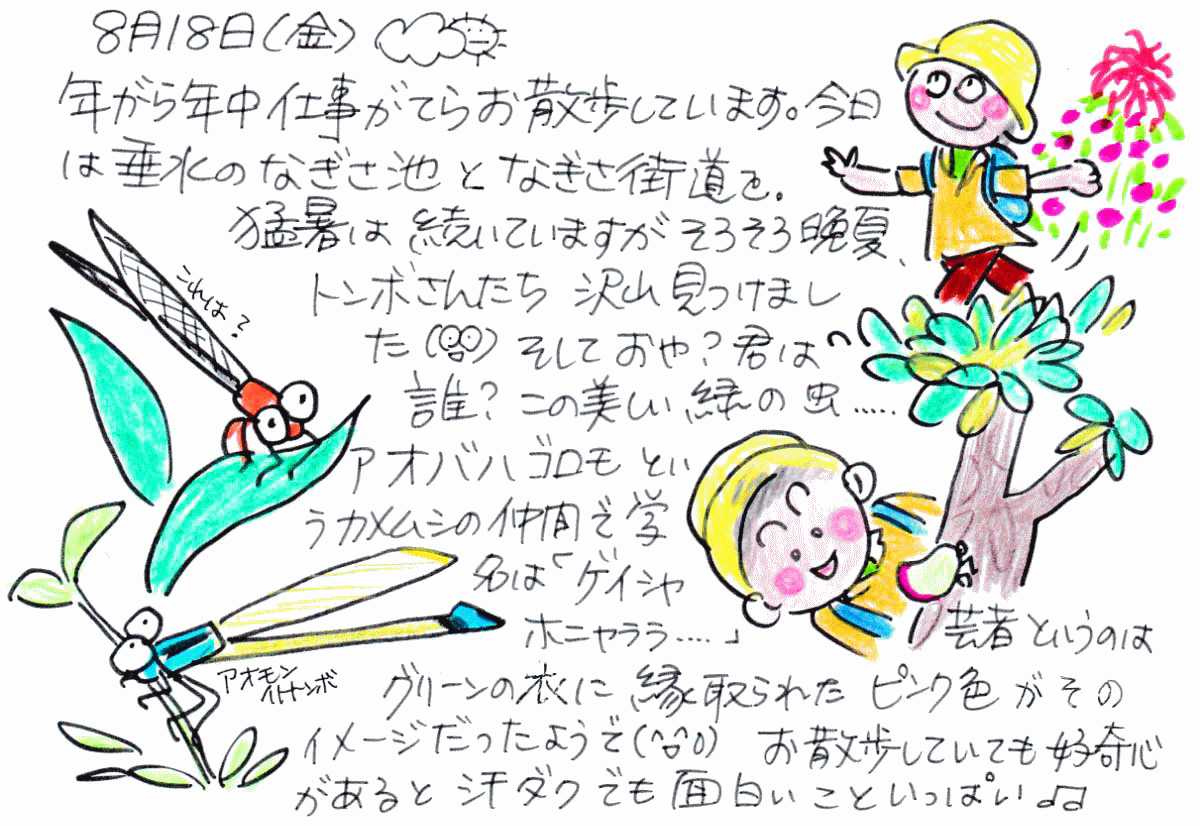 8月18日(金)
年がら年中仕事がてらお散歩しています。今日
は垂水のなぎさ池となぎさ街道を。
猛暑は続いていますがそろそろ晩夏、
トンボさんたち沢山見つけまし
た(^o^)そしておや?君は
誰?この美しい緑の虫.....
アオバハゴロモとい
うカメムシの仲間で学
名は「ゲイシャ
ホニャララ....」
芸者というのは
グリーンの衣に縁取られたピンク色がその
イメージだったようで(^^o)お散歩していても好奇心
があると汗ダクでも面白いこといっぱい♫
これは?
アオモン
イトトンボ